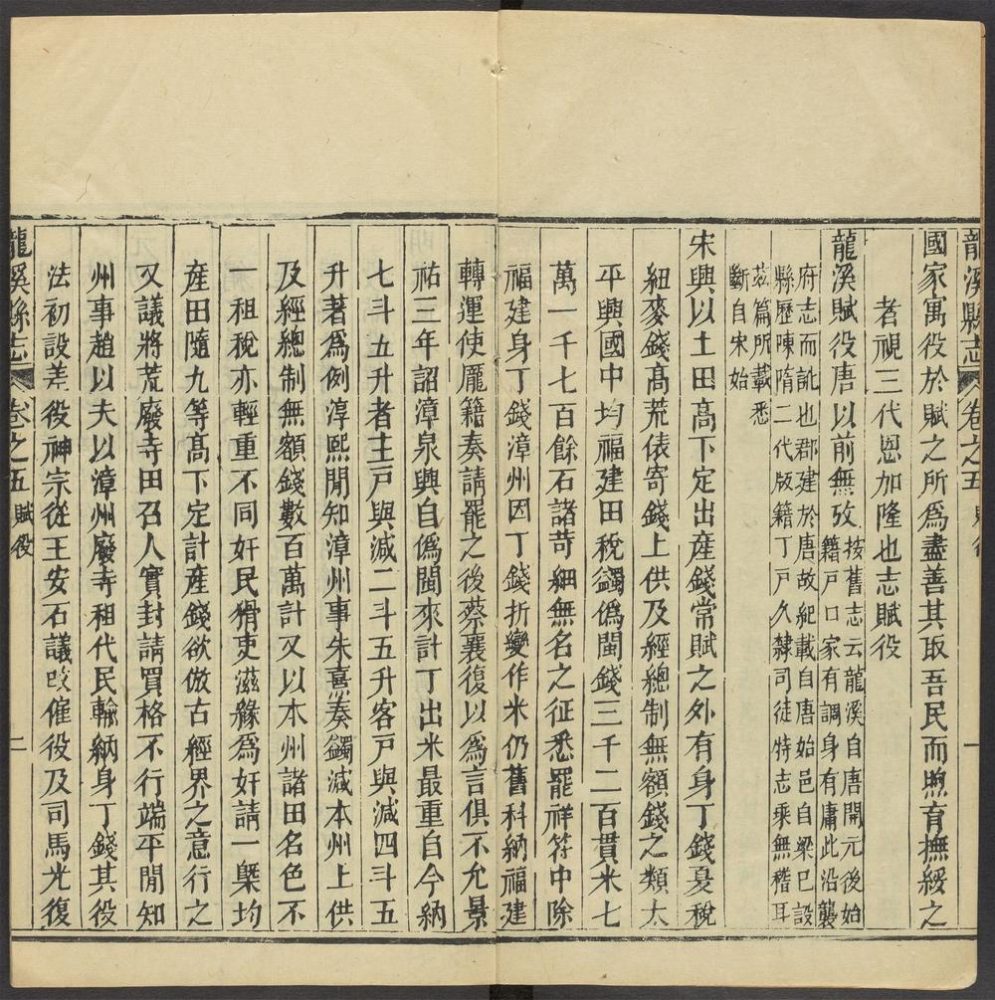 龍溪縣志 卷之五 賦役 一
國家寓役於賦之所爲盡善其取吾民而煦育撫綏之
者視三代恩加隆也志賦役
龍溪賦役唐以前無攷
按舊志云龍溪自唐開元後始
籍戶口家有調身有庸此沿襲
府志而訛也郡建於唐故紀載自唐始邑自梁已設
縣歷陳隋二代版籍丁戶久隸司徒特志乘無稽耳
茲篇所載悉
斷自宋始
宋興以土田高下定出產錢常賦之外有身丁錢夏稅
紐麥錢高荒俵寄錢上供及經總制無額錢之類太
平興國中均福建田稅蠲僞閩錢三千二百貫米七
萬一千七百餘石諸苛細無名之征悉罷祥符中除
福建身丁錢漳州因丁錢折變作米仍舊科納福建
轉運使龐籍奏請罷之後蔡襄復以爲言俱不允景
祐三年詔漳泉興自僞閩來計丁出米最重自今納
七斗五升者主戶與減二斗五升客戶與減四斗五
升著爲例淳熙閒知漳州事朱熹奏蠲減本州上供
及經總制無額錢數百萬計又以本州諸田名色不
一租稅亦輕重不同奸民猾吏滋緣爲奸請一槩均
產田隨九等高下定計產錢欲倣古經界之意行之
又議將荒廢寺田召人實封請買格不行端平閒知
州事趙以夫以漳州廢寺租代民輸納身丁錢其役
法初設差役神宗從王安石議改催役及司馬光復
龍溪縣志 卷之五 賦役 二